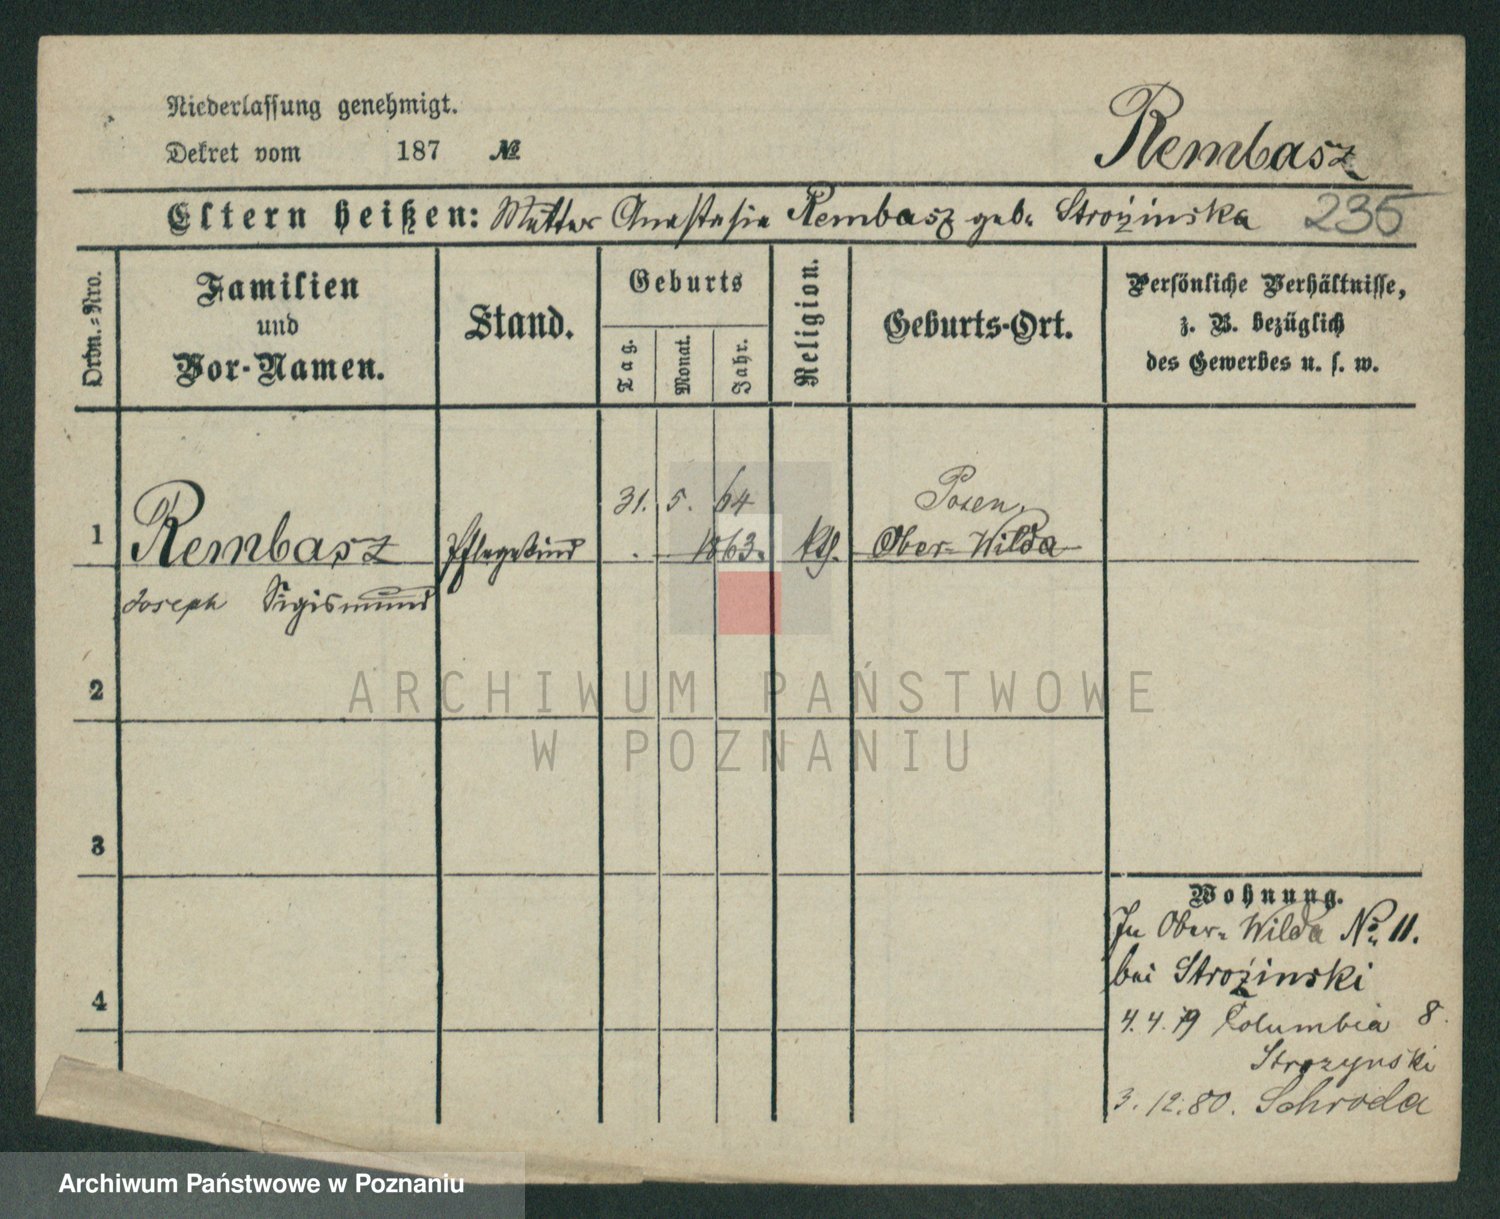 Niederlassung genehmigt.
Dekret vom 187 №
Rembasz
Eltern heißen: Mutter Anastasia Rembasz geb. Strożinska 235
Ordn.=Nro.
Familien
und
Vor-Namen.
Stand.
Geburts
Tag.
Monat.
Jahr.
Religion.
Geburts-Ort.
Persönliche Verhältnisse,
z. B. bezüglich
des Gewerbes u. s. w.
31. 5. 64 Posen,
1 Rembasz Pflegekind 1863. kth. Ober-Wilda
Joseph Sigismund
2
3
4
Wohnung.
In Ober-Wilda No 11.
bei Strożinski
4.4.79 Columbia 8.
Strozynski
3.12.80. Schroda
ARCHIWUM PAŃSTWOWE
W POZNANIU
Archiwum Państwowe w Poznaniu